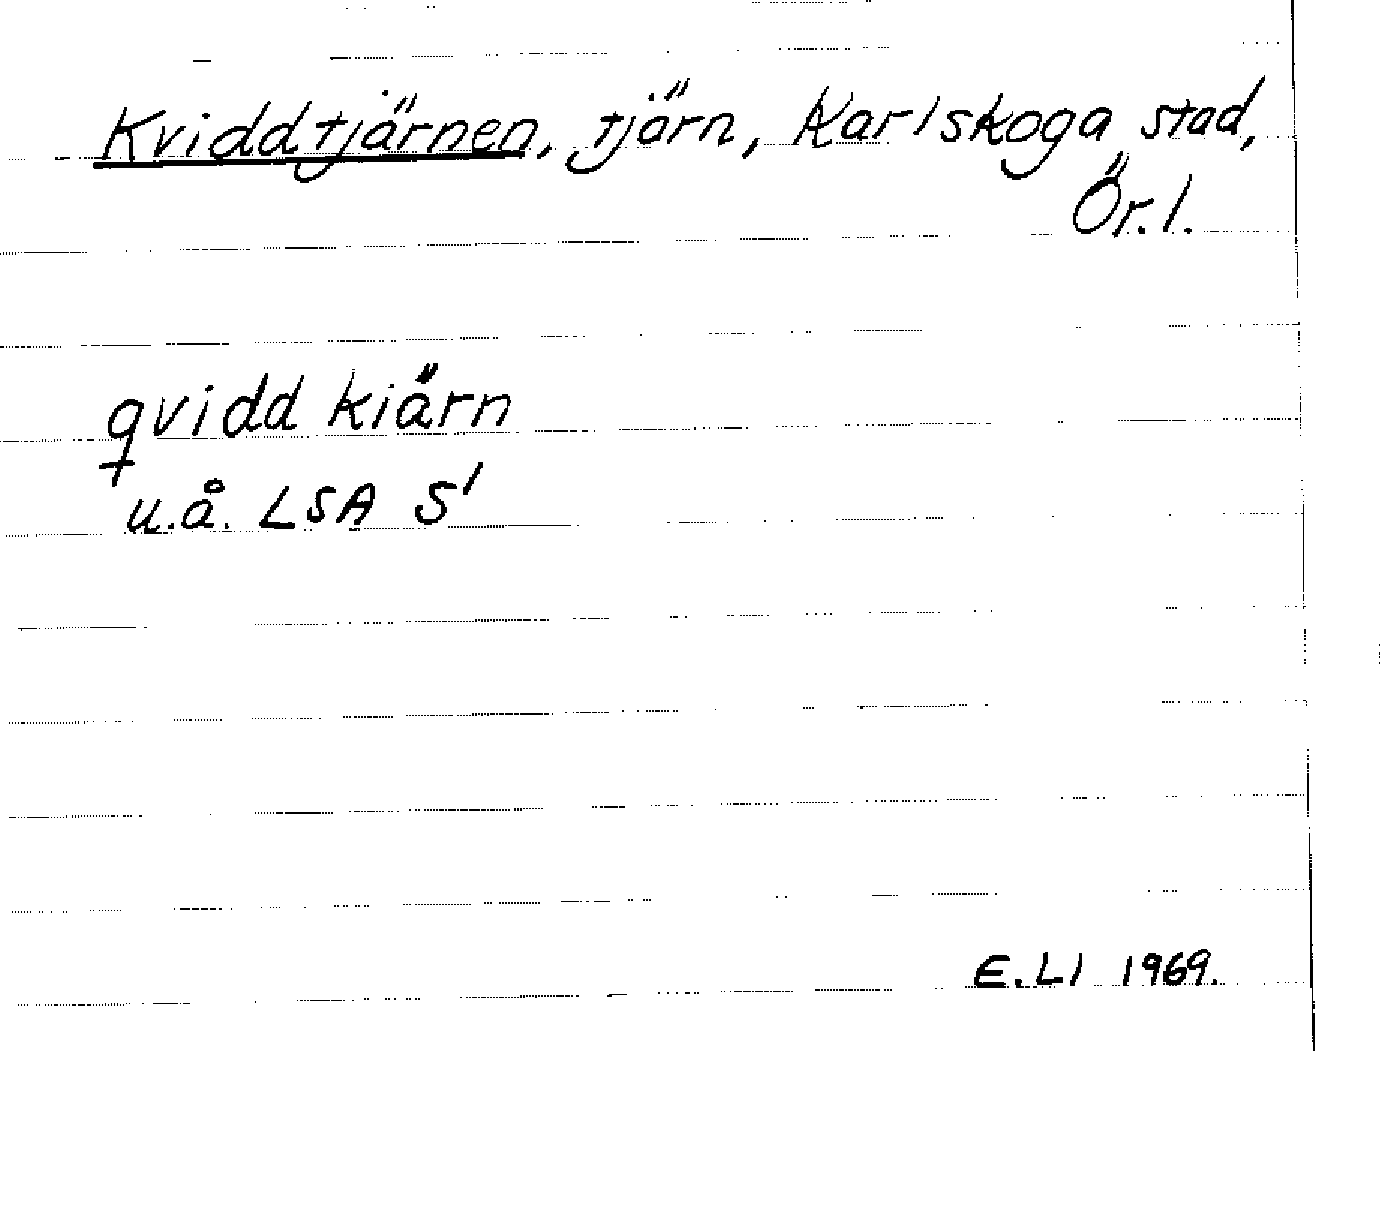 Kviddtjärnen, tjärn, Karlskoga stad,
Ör. l.
qvidd kiärn
u.å. LSA S'
E.LI 1969.